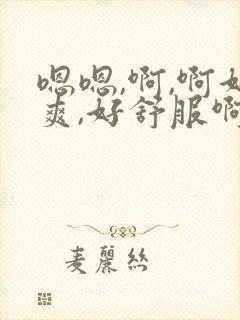 嗯嗯,啊,啊好
爽,好舒服啊
麦麗絲